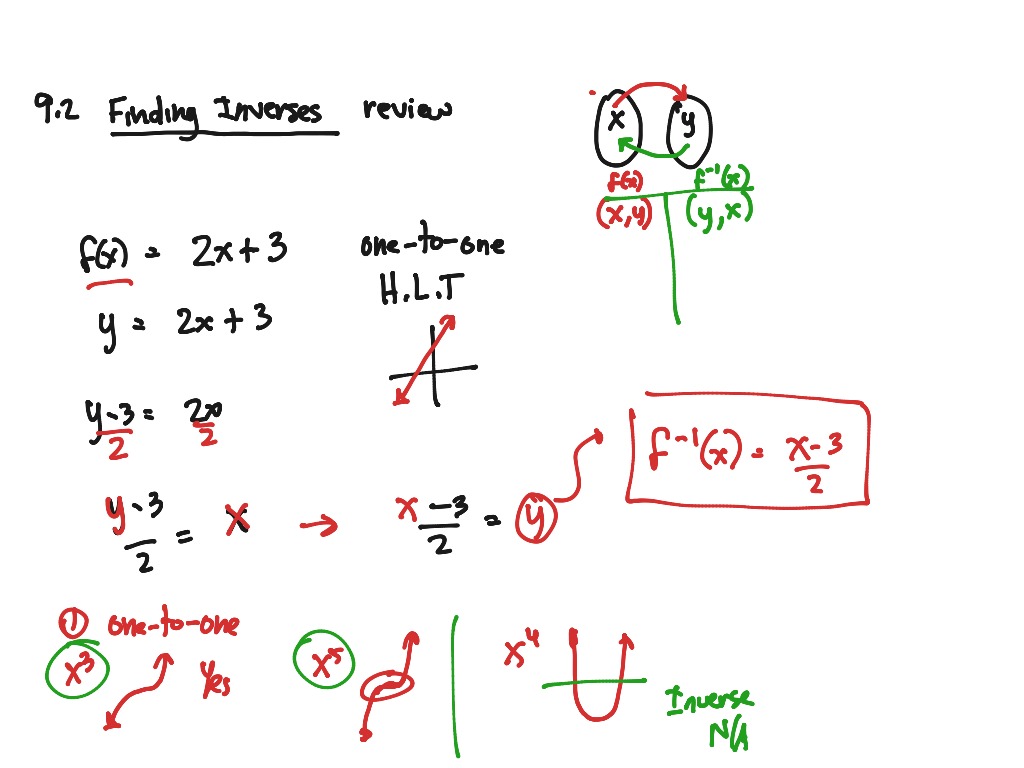 9.2 Finding Inverses review
x y
f(x) f⁻¹(x)
(x,y) (y,x)
f(x) = 2x+3
one-to-one
H.L.T
y = 2x+3
y-3 = 2x
2 2
f⁻¹(x) = x-3
2
y-3 = x → x-3 = y
2 2
① one-to-one
x³ Yes x⁵ x⁴
Inverse
N/A